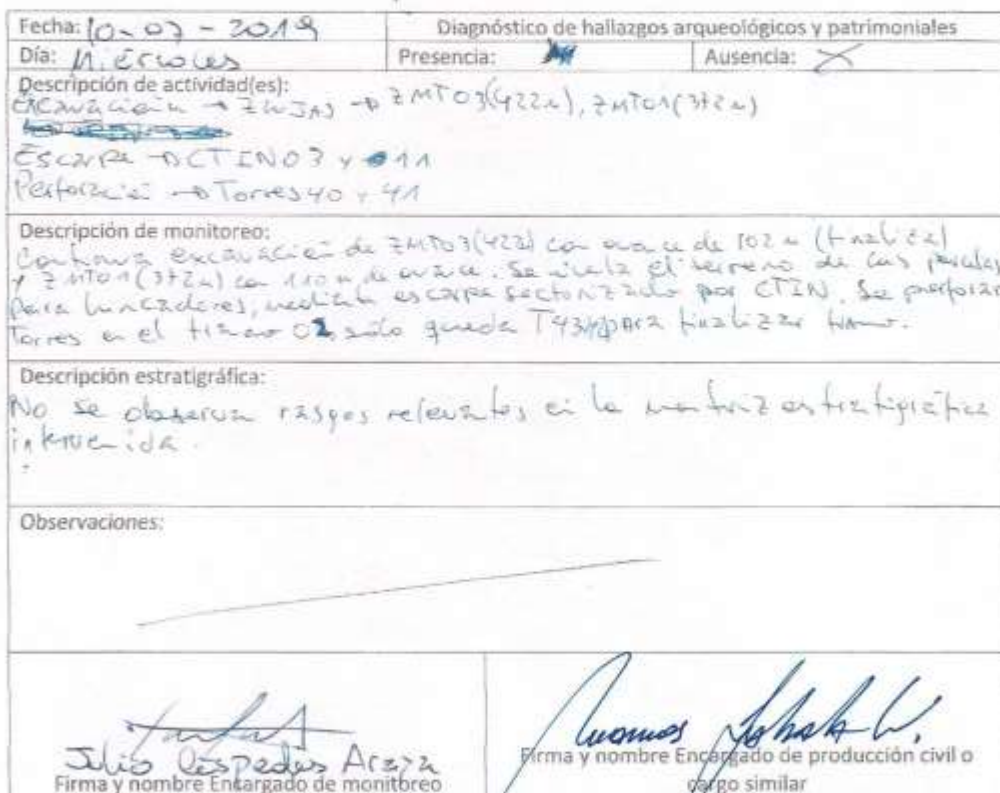 Fecha: 10-07-2019
Diagnóstico de hallazgos arqueológicos y patrimoniales
Día: Miércoles
Presencia:
Ausencia: X
Descripción de actividad(es):
Excavación → Zanjas → ZMT03(422m), ZMT01(372m)
Escarpe → CTIN03 y 11
Perforación → Torres 40 y 41
Descripción de monitoreo:
Continua excavación de ZMT03(422) con avance de 102 m (finaliza)
y ZMT01(372m) con 110 m de avance. Se nivela el terreno de las parcelas
para hincadores, mediante escarpe sectorizado por CTIN. Se perforan
Torres en el tramo 02, solo queda T43 para finalizar tramo.
Descripción estratigráfica:
No se observan rasgos relevantes en la matriz estratigráfica
intervenida.
Observaciones:
Julio Céspedes Araya
Firma y nombre Encargado de monitoreo
Firma y nombre Encargado de producción civil o
cargo similar